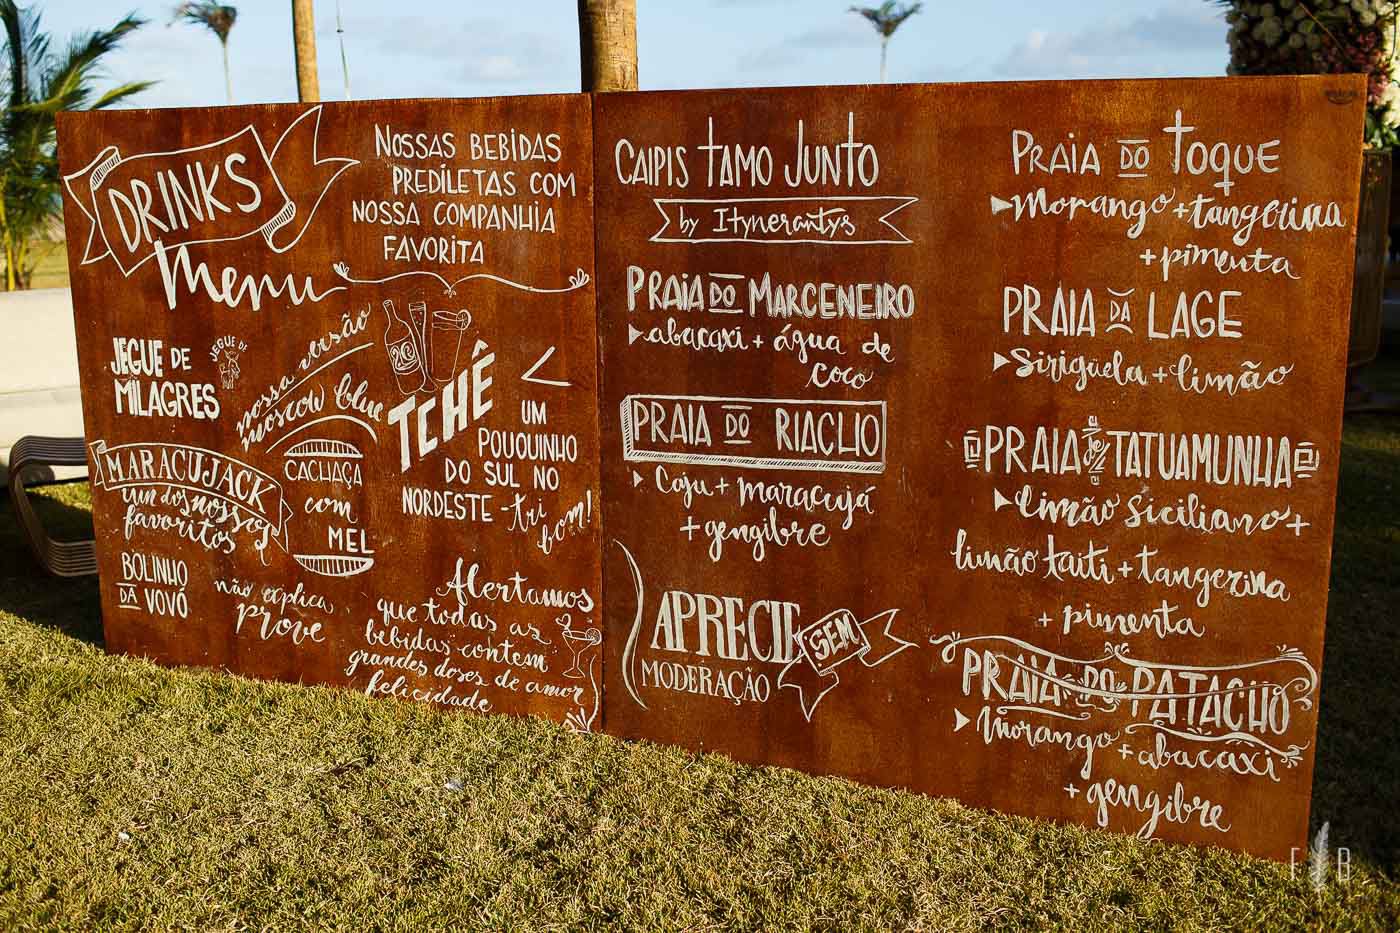 DRINKS
Menu
NOSSAS BEBIDAS
PREDILETAS COM
NOSSA COMPANHIA
FAVORITA
JEGUE DE
MILAGRES
JEGUE DE
nossa versão
moscow blue
TCHÊ
UM
POUQUINHO
DO SUL NO
NORDESTE - tri
bom!
MARACUJACK
um dos nossos
favoritos
CACHAÇA
com
MEL
BOLINHO
DA VOVÓ
não explica
prove
Alertamos
que todas as
bebidas contem
grandes doses de amor
felicidade
CAIPIS TAMO JUNTO
by Itynerantys
PRAIA DO MARCENEIRO
abacaxi + água de
coco
PRAIA DO RIACHO
Caju + maracujá
+ gengibre
APRECIE
SEM
MODERAÇÃO
PRAIA DO TOQUE
Morango + tangerina
+ pimenta
PRAIA DA LAGE
Sirigüela + limão
PRAIA DE TATUAMUNHA
limão siciliano +
limão taiti + tangerina
+ pimenta
PRAIA DO PATACHO
Morango + abacaxi
+ gengibre
F B